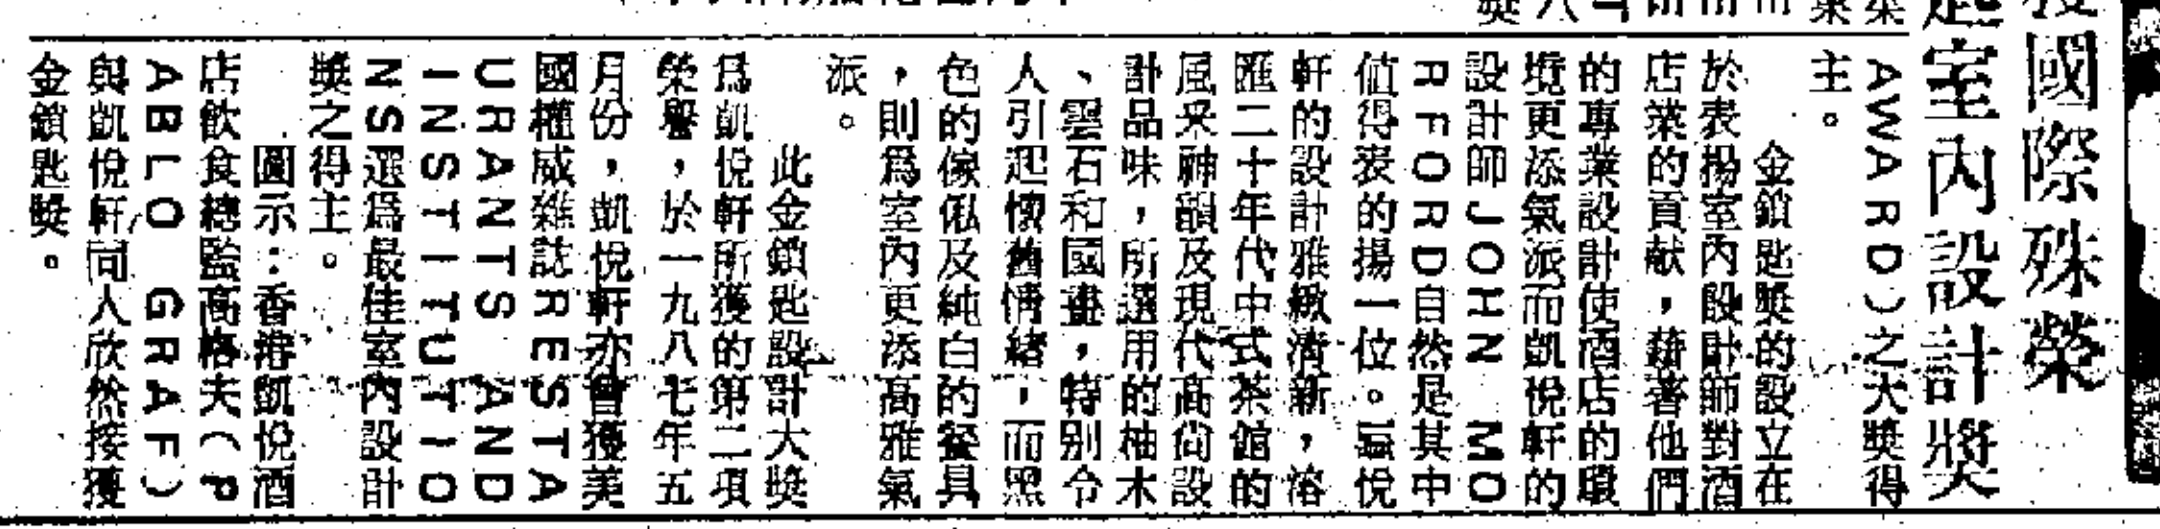 國際殊榮
室內設計獎
AWARD)之大獎得
主。
金鎖匙獎的設立在
於表揚室內設計師對酒
店業的貢献，藉著他們
的專業設計使酒店的環
境更添氣派而凱悅軒的
設計師JOHN MO
RFORD自然是其中
值得表的揚一位。凱悅
軒的設計雅緻清新，溶
匯二十年代中式茶館的
風采神韻及現代高尚設
計品味，所選用的柚木
、雲石和國畫，特别令
人引起懷舊情緒，而黑
色的傢俬及純白的餐具
，則爲室內更添高雅氣
派。
此金鎖匙設計大獎
爲凱悅軒所獲的第二項
榮譽，於一九八七年五
月份，凱悅軒亦曾獲美
國權威雜誌RESTA
URANTS AND
INSTITUTIO
NS選爲最佳室內設計
獎之得主。
圖示：香港凱悅酒
店飲食總監高格夫(P
ABLO GRAF)
與凱悅軒同人欣然接獲
金鎖匙獎。